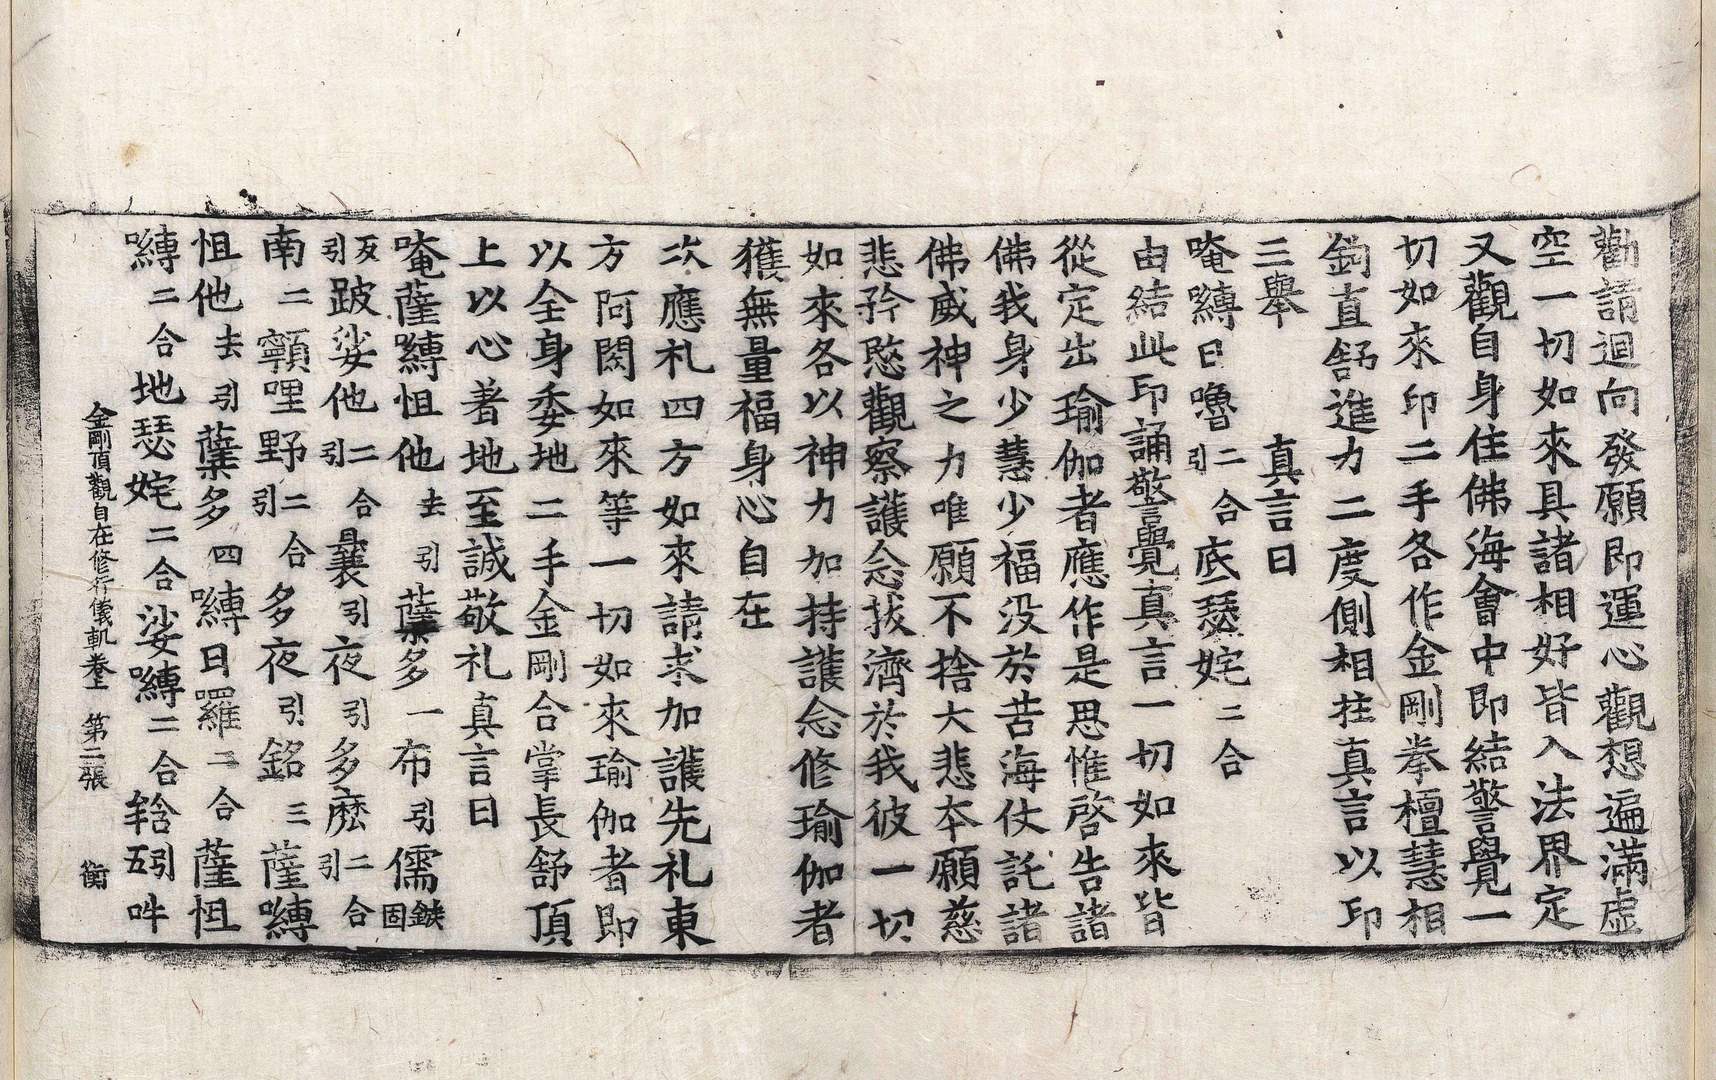 勸請迴向發願即運心觀想遍滿虛
空一切如來具諸相好皆入法界定
又觀自身住佛海會中即結警覺一
切如來印二手各作金剛拳檀慧相
鉤直舒進力二度側相拄真言以印
三舉　真言曰
唵嚩日嚕二合引底瑟姹二合
由結此印誦警覺真言一切如來皆
從定出瑜伽者應作是思惟啓告諸
佛我身少慧少福没於苦海仗託諸
佛威神之力唯願不捨大悲本願慈
悲矜愍觀察護念拔濟於我彼一切
如來各以神力加持護念修瑜伽者
獲無量福身心自在
次應礼四方如來請求加護先礼東
方阿閦如來等一切如來瑜伽者即
以全身委地二手金剛合掌長舒頂
上以心着地至誠敬礼真言曰
唵薩嚩怛他去引蘖多一布引儒鏃固
反引跛娑他二合引曩引夜引多麽二合引
南二顐哩野二合引多夜引銘三薩嚩
怛他去引蘖多四嚩日囉二合薩怛
嚩二合地瑟姹二合娑嚩二合𤚥五引吽
金剛頂觀自在修行儀軌卷上　第二張　衡